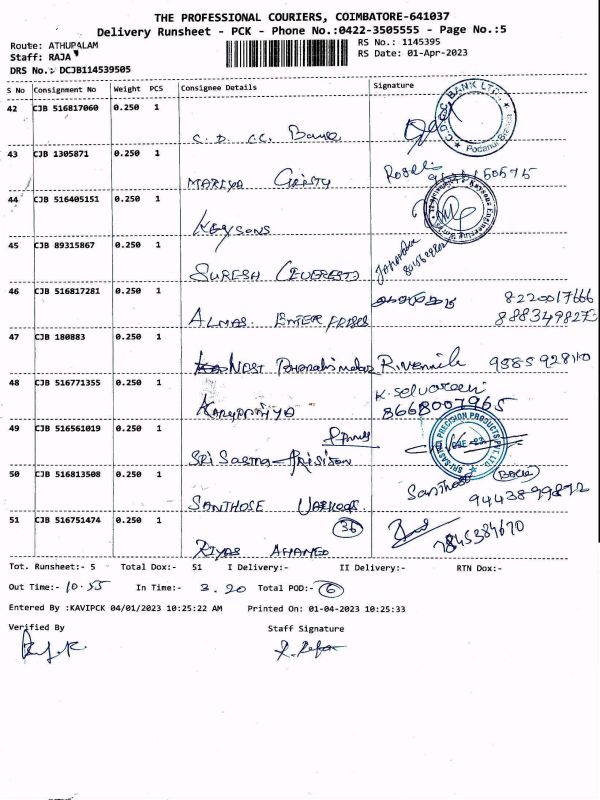 THE PROFESSIONAL COURIERS, COIMBATORE-641037
Delivery Runsheet - PCK - Phone No.:0422-3505555 - Page No.:5
Route: ATHUPALAM RS No.: 1145395
Staff: RAJA RS Date: 01-Apr-2023
DRS No.: DCJB114539505
S No Consignment No Weight PCS Consignee Details Signature
42 CJB 516817060 0.250 1
C.D.C.C. Bank
C.D.C.C. BANK LTD., Podanur Branch
43 CJB 1305871 0.250 1
MARIYA Cristy
44 CJB 516405151 0.250 1
KEYSONS
45 CJB 89315867 0.250 1
SURESH (EVEREST)
46 CJB 516817281 0.250 1
ALMAS ENTER PRISES 8220017666
8883498273
47 CJB 180883 0.250 1
9385928110
48 CJB 516771355 0.250 1
K. Selvarani
8668007965
49 CJB 516561019 0.250 1
SRI Sastha Prisison
SRI SASTHA PRECISION PRODUCTS PVT. LTD.
50 CJB 516813508 0.250 1
SANTHOSE Santhose
9443899872
51 CJB 516751474 0.250 1
36
RIYAS AHAMED 7845384670
Tot. Runsheet:- 5 Total Dox:- 51 I Delivery:- II Delivery:- RTN Dox:-
Out Time:- 10.55 In Time:- 3.20 Total POD:- 6
Entered By :KAVIPCK 04/01/2023 10:25:22 AM Printed On: 01-04-2023 10:25:33
Verified By Staff Signature